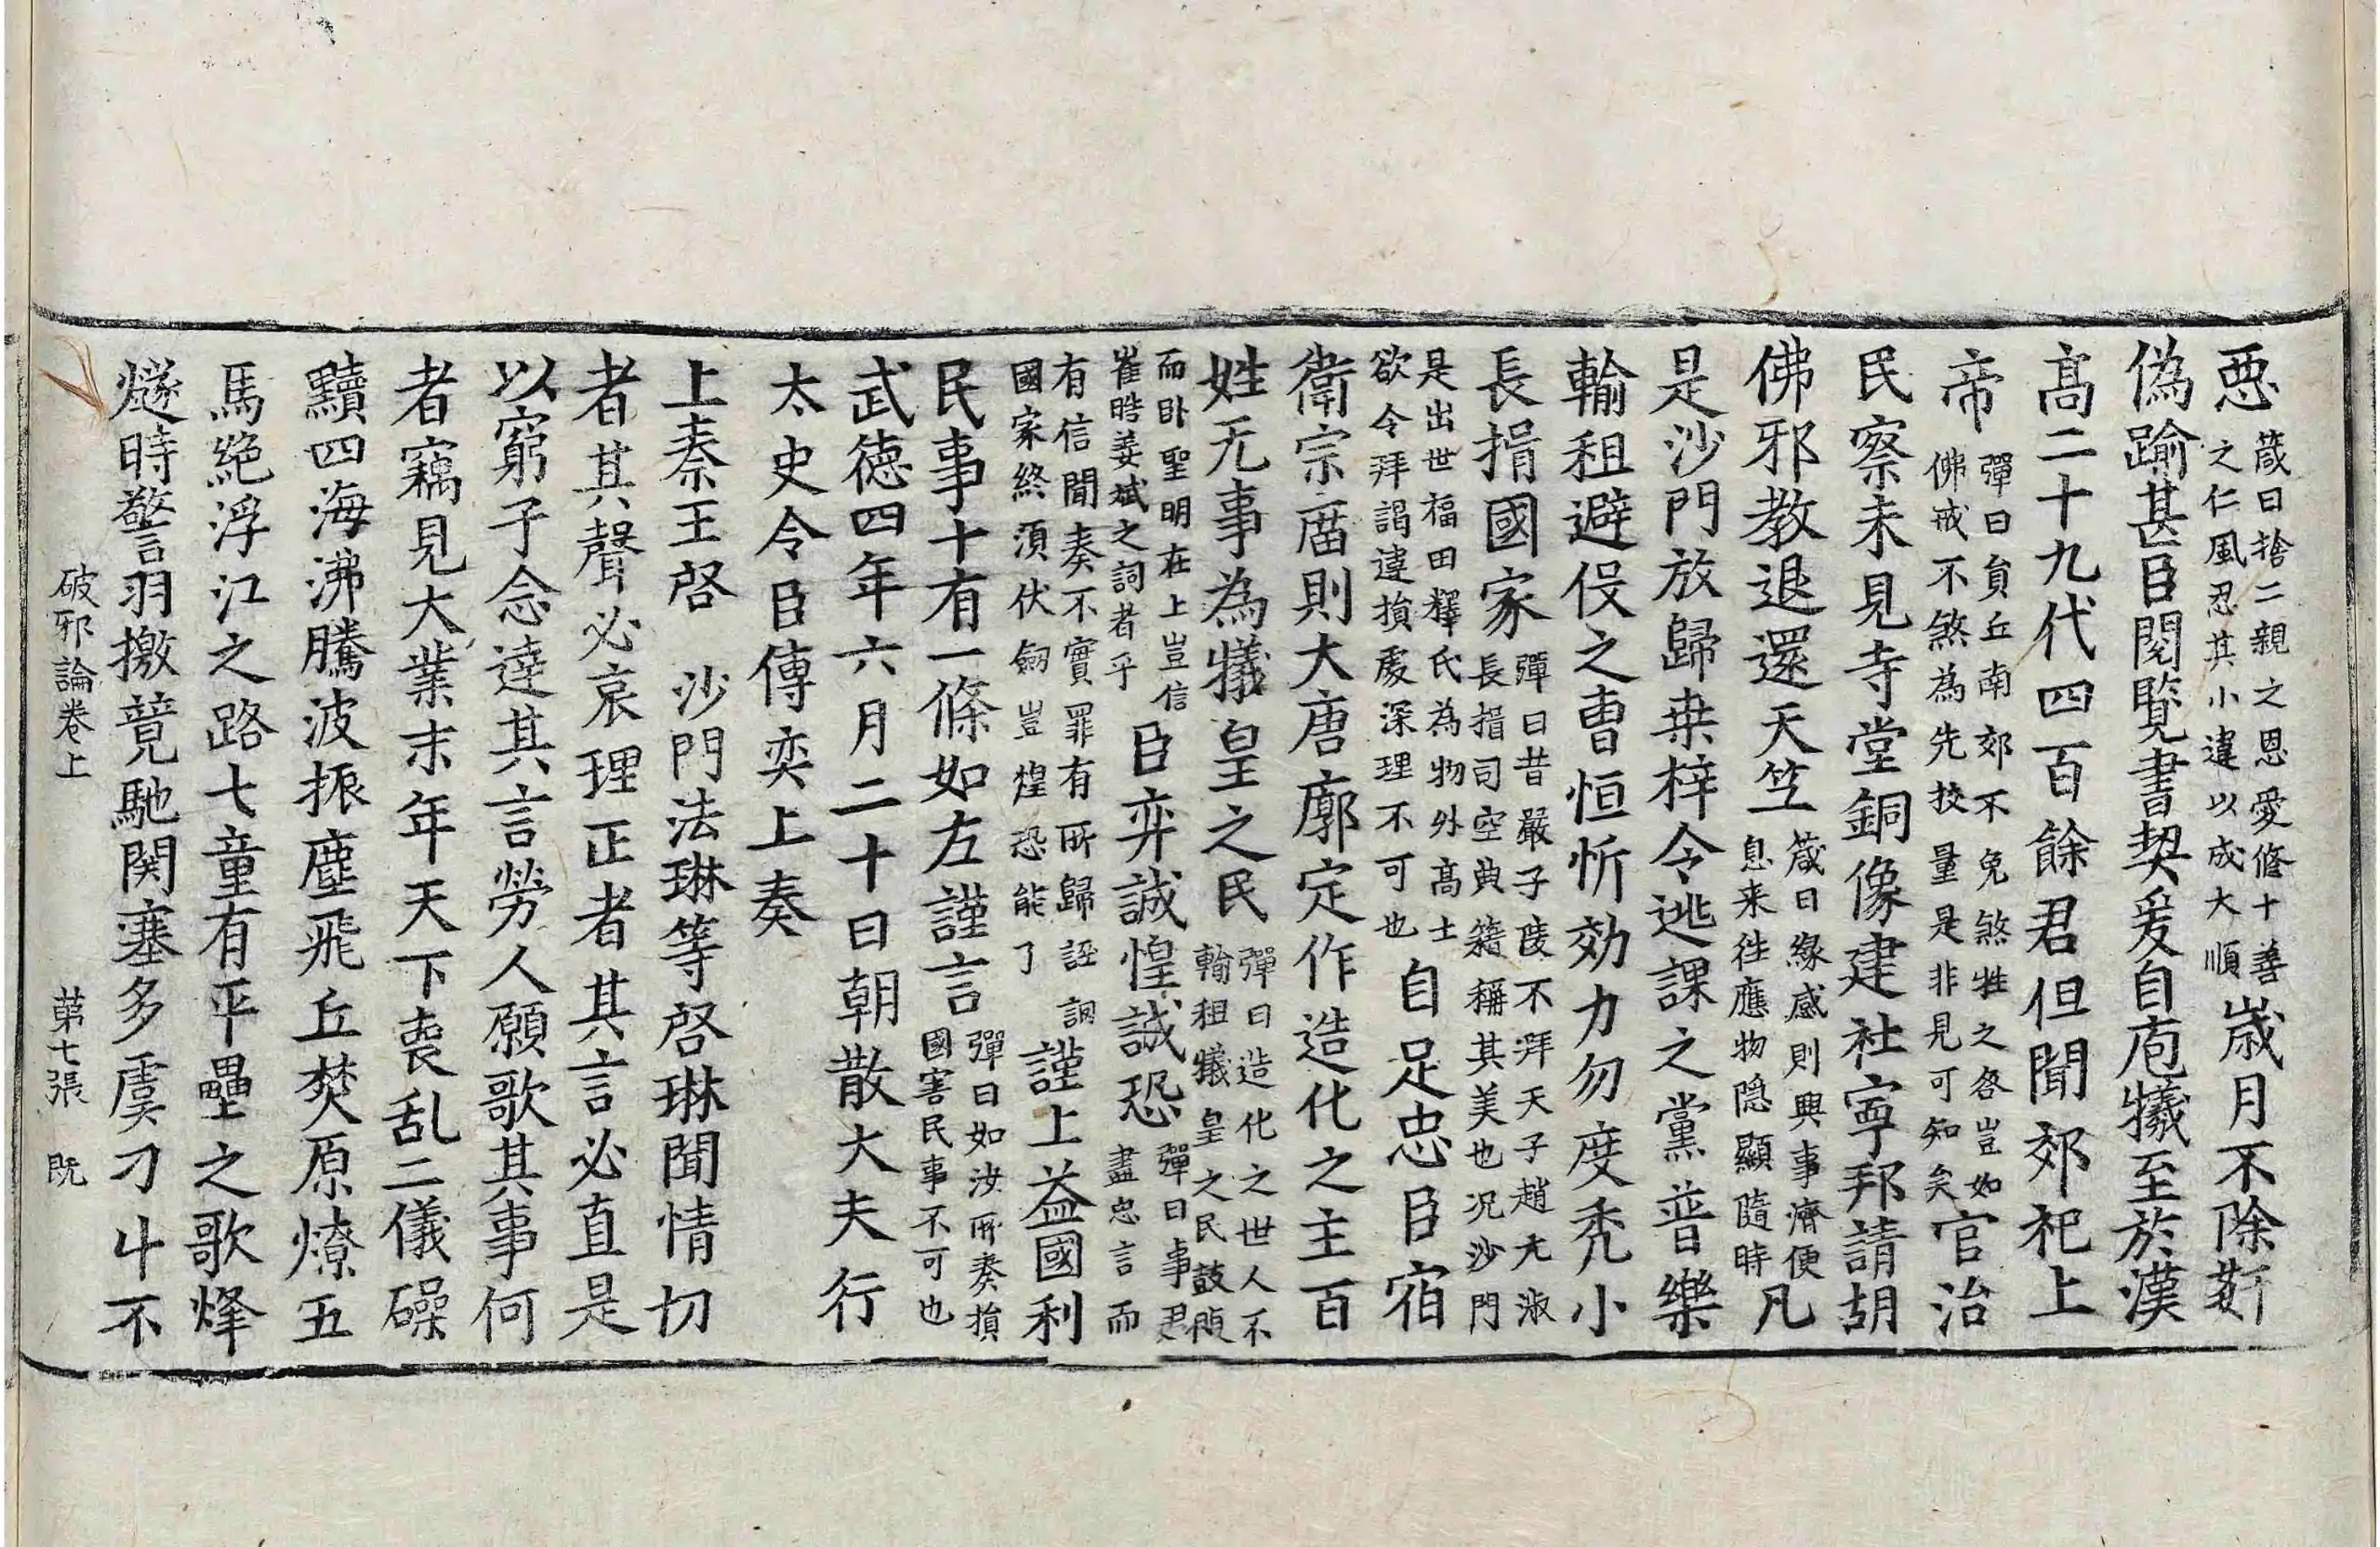 惡箴曰捨二親之恩愛修十善之仁風忍其小違以成大順歲月不除姧
偽踰甚臣閱覽書契爰自庖犧至於漢
髙二十九代四百餘君但聞郊祀上
帝彈曰負丘南郊不免煞牲之咎豈如佛戒不煞為先挍量是非見可知矣官治
民察未見寺堂銅像建社寧邦請胡
佛邪教退還天竺箴曰緣感則興事濟便息来往應物隠顯隨時凡
是沙門放歸桒梓令逃課之黨普樂
輸租避伇之曺恒忻効力勿度秃小
長揖國家彈曰昔嚴子陵不拜天子趙元淑長揖司空典籍稱其美也况沙門
是出世福田釋氏為物外髙士欲令拜謁違損處深理不可也自足忠臣宿
衛宗庿則大唐廓定作造化之主百
姓无事為犠皇之民彈曰造化之世人不輸租犠皇之民鼓腹
而卧聖明在上豈信崔晧姜斌之詞者乎臣弈誠惶誠恐彈曰事君盡忠言而
有信聞奏不實罪有所歸誣調國家終湏伏劒豈惶恐能了謹上益國利
民事十有一條如左謹言彈曰如汝所奏損國害民事不可也
武徳四年六月二十日朝散大夫行
太史令臣傅奕上奏
上秦王啓 沙門法琳等啓琳聞情切
者其聲必哀理正者其言必直是
以窮子念達其言勞人願歌其事何
者竊見大業末年天下喪乱二儀磣
黷四海沸騰波振塵飛丘焚原燎五
馬絶浮江之路七童有平壘之歌烽
燧時警羽檄竟馳関塞多虞刁斗不
破邪論卷上 苐七張 旣